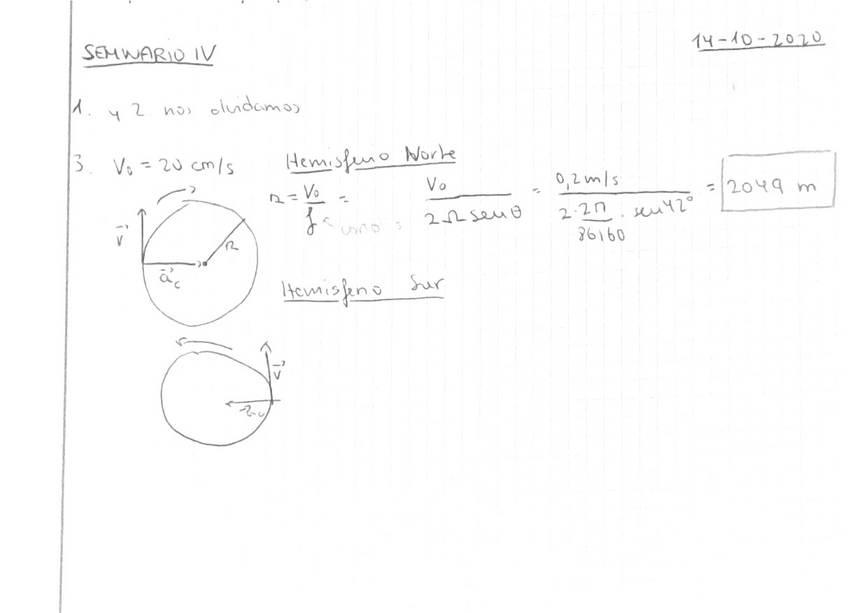 SEMINARIO IV
14-10-2020
1. y 2 nos olvidamos
3. V₀ = 20 cm/s
Hemisferio Norte
R = V₀/f = V₀/(2 Ω sen θ) = 0,2 m/s/(2 · 2Π/86160 · sen 42°) = 2049 m
V⃗
R
a⃗c
Hemisferio Sur
V⃗